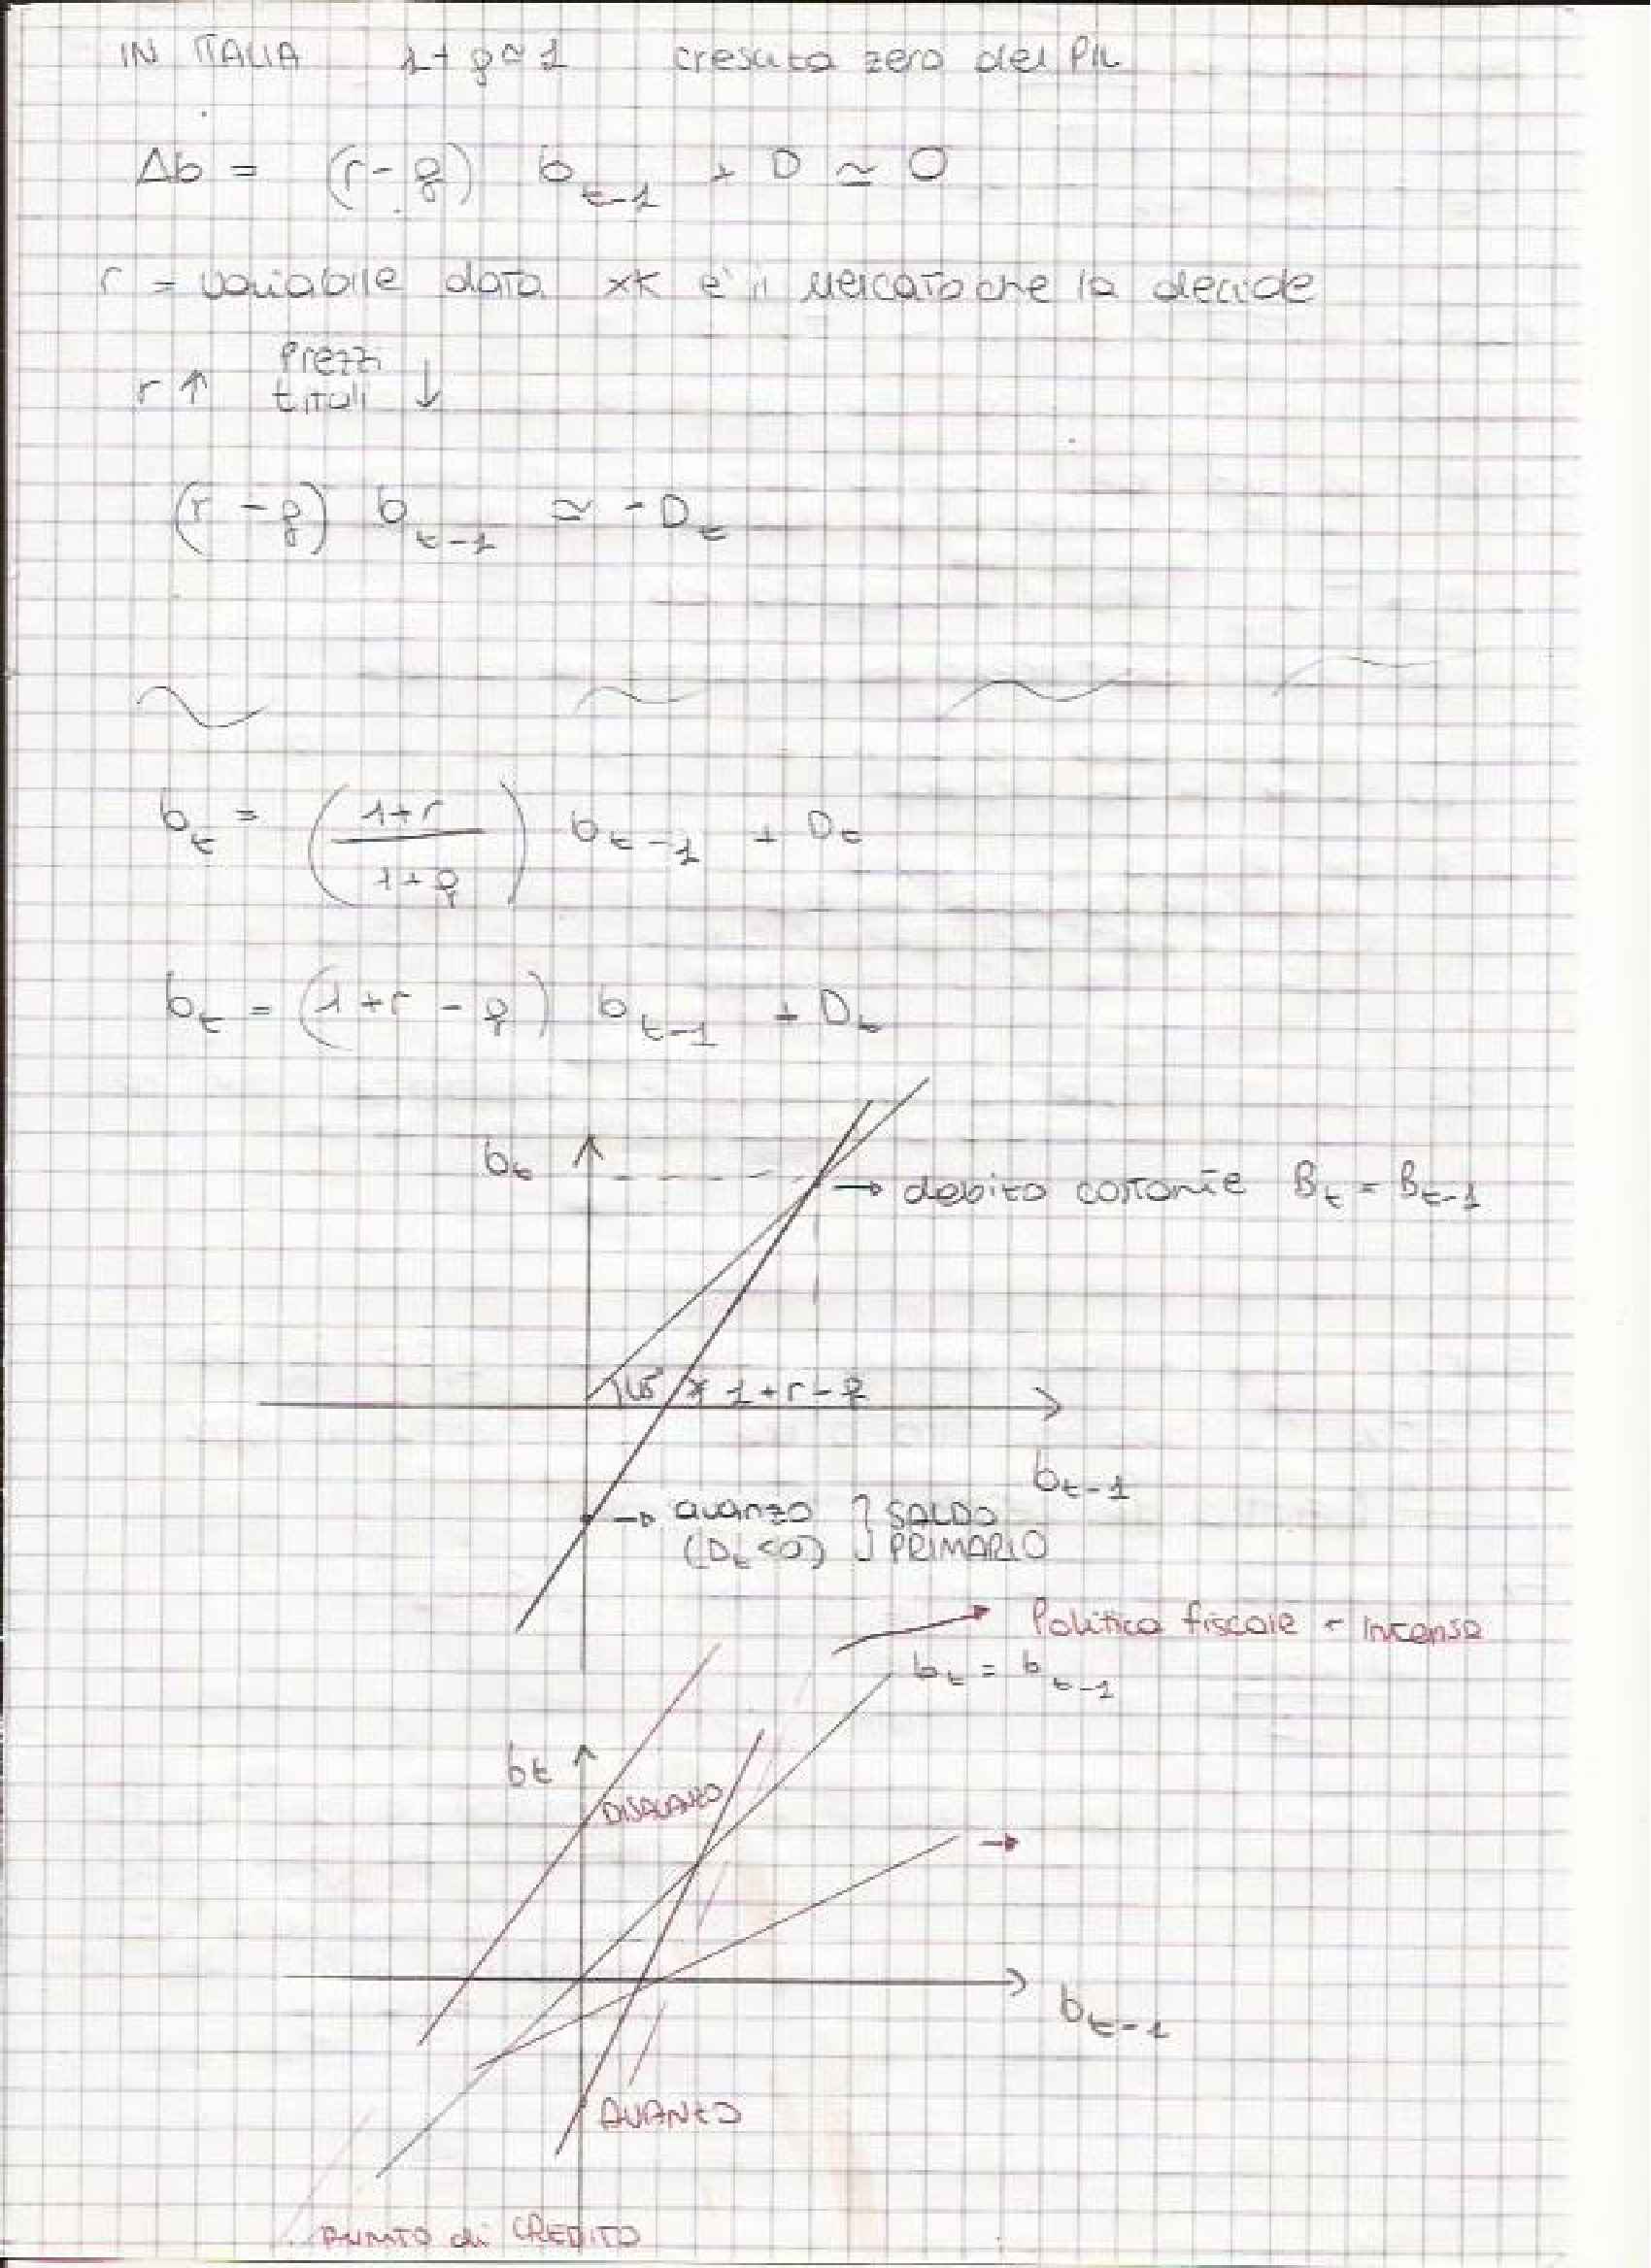 IN ITALIA 1+g≃1 crescita zero del PIL
Δb = (r-g) b_{t-1} + D ≃ 0
r = variabile data xk è il mercato che la decide
r ↑ Prezzi titoli ↓
(r-g) b_{t-1} ≃ -D_t
b_t = (1+r / 1+g) b_{t-1} + D_t
b_t = (1+r-g) b_{t-1} + D_t
b_t
→ debito costante B_t = B_{t-1}
45° * 1+r-g
b_{t-1}
→ avanzo (D_t<0) } SALDO PRIMARIO
Politica fiscale - intensa
b_t = b_{t-1}
b_t
DISAVANZO
→
b_{t-1}
AVANZO
PUNTO di CREDITO